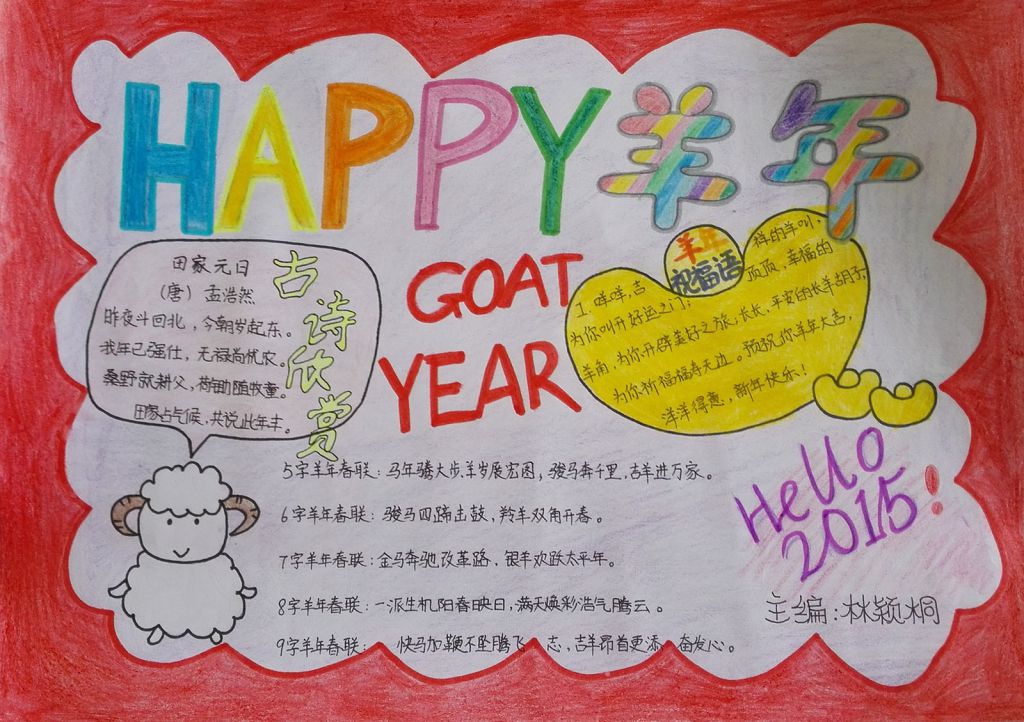 HAPPY羊年
GOAT
YEAR
古诗欣赏
田家元日
(唐) 孟浩然
昨夜斗回北，今朝岁起东。
我年已强仕，无禄尚忧农。
桑野就耕父，荷锄随牧童。
田家占气候，共说此年丰。
羊年
祝福语
1. 咩咩，吉祥的羊叫，
为你叫开好运之门；顶顶，幸福的
羊角，为你开辟美好之旅；长长，平安的长羊胡子，
为你祈福福寿无边。预祝你羊年大吉，
洋洋得意，新年快乐！
5字羊年春联：马年骋大步，羊岁展宏图，骏马奔千里，吉羊进万家。
6字羊年春联：骏马四蹄击鼓，羚羊双角开春。
7字羊年春联：金马奔驰改革路，银羊欢跃太平年。
8字羊年春联：一派生机阳春映日，满天焕彩浩气腾云。
9字羊年春联： 快马加鞭不坠腾飞 志，吉羊昂首更添 奋发心。
Hello
2015！
主编：林颖桐